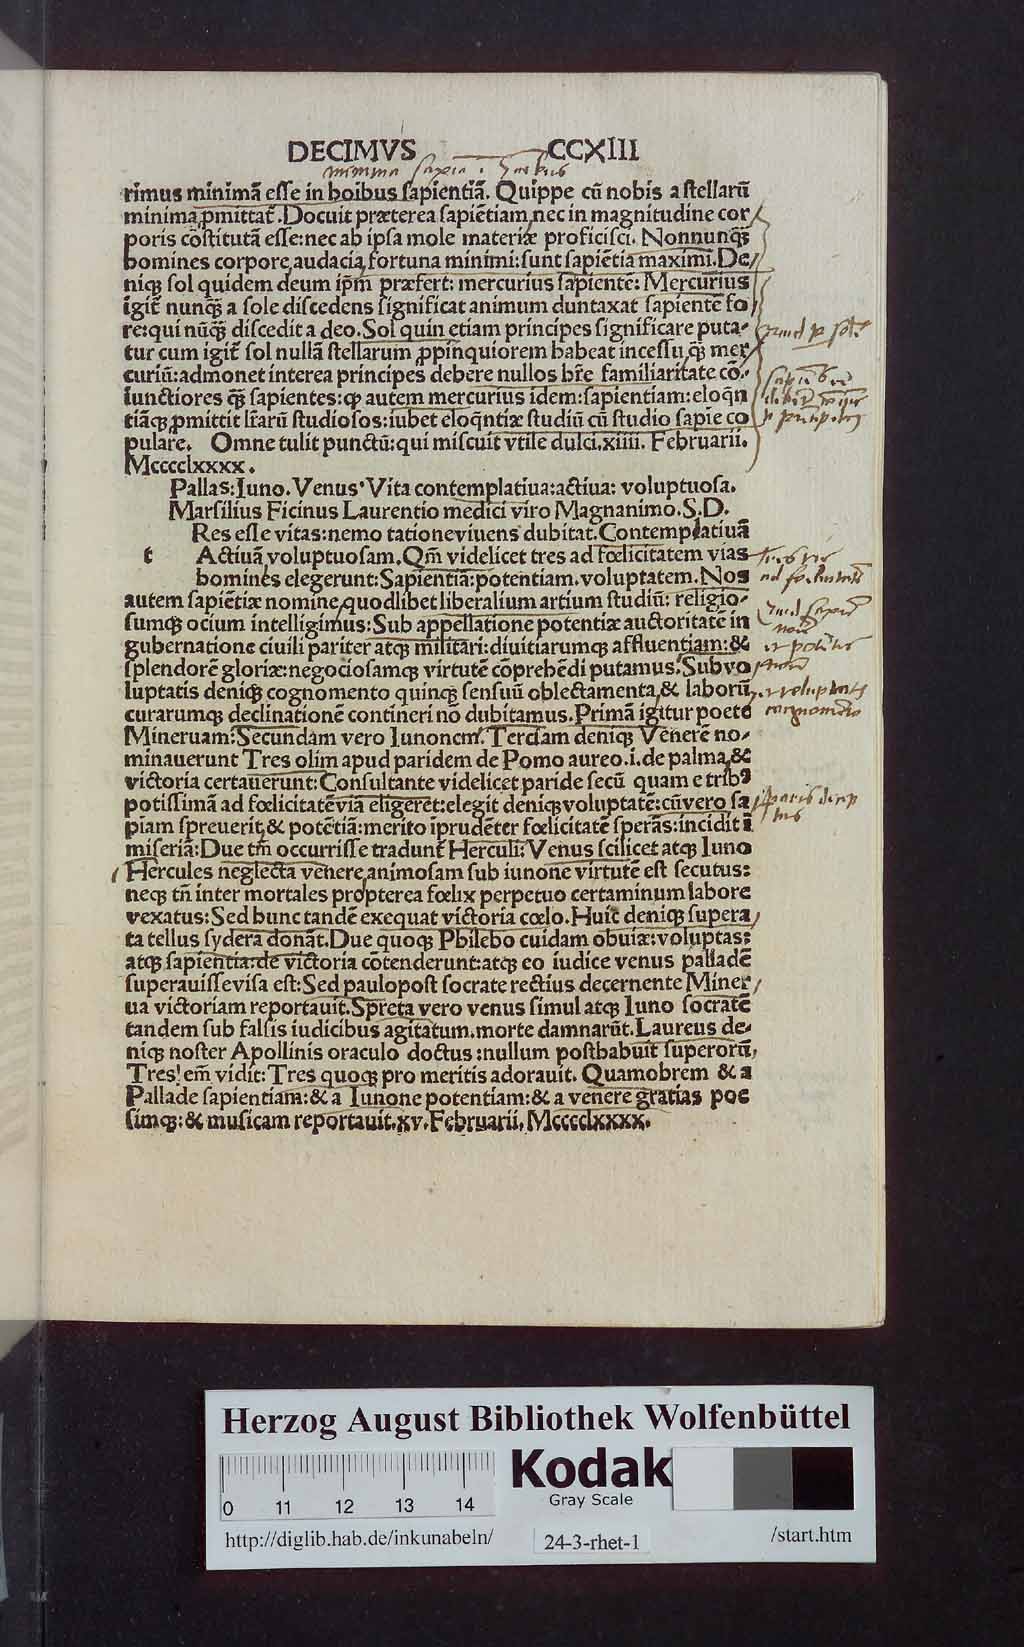 DECIMVS CCXIII
rimus minimā esse in hoibus sapientiā. Quippe cū nobis a stellarū
minima ꝓmittat̄. Docuit præterea sapiētiam, nec in magnitudine cor
poris cōstitutā esse: nec ab ipsa mole materiæ proficisci. Nonnunq̄ꝫ
homines corpore, audacia, fortuna minimi: sunt sapiētia maximi. De/
niqꝫ sol quidem deum ip̄m præfert: mercurius sapientē: Mercurius
igit̄ nunq̄ꝫ a sole discedens significat animum duntaxat sapientē fo
re: qui nūq̄ꝫ discedit a deo. Sol quin etiam principes significare puta-
tur cum igit̄ sol nullā stellarum ꝓpinquiorem habeat incessu, q̄ꝫ mer
curiū: admonet interea principes debere nullos hr̄e familiaritate cō-
iunctiores q̄ꝫ sapientes: ꝙ autem mercurius idem: sapientiam: eloqn̄
tiāqꝫ ꝓmittit lr̄arū studiosos: iubet eloqn̄tiæ studiū cū studio sapie co
pulare. Omne tulit punctū: qui miscuit vtile dulci. xiiii. Februarii.
Mcccclxxxx.
Pallas: Iuno. Venus' Vita contemplatiua: actiua: voluptuosa.
Marsilius Ficinus Laurentio medici viro Magnanimo. S. D.
Res esse vitas: nemo tationeviuens dubitat. Contemplatiuā
t Actiuā, voluptuosam. Qm̄ videlicet tres ad fœlicitatem vias
homines elegerunt: Sapientiā: potentiam. voluptatem. Nos
autem sapiētiæ nomine, quodlibet liberalium artium studiū: religio-
sumqꝫ ocium intelligimus: Sub appellatione potentiæ auctoritatē in
gubernatione ciuili pariter atqꝫ militari: diuitiarumqꝫ affluentiam: &
splendorē gloriæ: negociosamqꝫ virtutē cōprehēdi putamus. Sub vo
luptatis deniqꝫ cognomento quinqꝫ sensuū oblectamenta, & laborū,
curarumqꝫ declinationē contineri nō dubitamus. Primā igitur poete
Mineruam: Secundam vero Iunonem. Terciam deniqꝫ Venerē no-
minauerunt Tres olim apud paridem de Pomo aureo. i. de palma, &
victoria certauerunt: Consultante videlicet paride secū quam e trib9
potissimā ad fœlicitatē viā eligeret: elegit deniqꝫ voluptatē: cū vero sa
piam spreuerit, & potētiā: merito īprudēter fœlicitatē sperās: incidit ī
miseriā: Due tm̄ occurrisse tradunt Herculi: Venus scilicet atqꝫ Iuno
Hercules neglecta venere, animosam sub iunone virtutē est secutus:
neqꝫ tn̄ inter mortales propterea fœlix perpetuo certaminum labore
vexatus: Sed hunc tandē exequat victoria cœlo. Huic deniqꝫ supera/
ta tellus sydera donāt. Due quoqꝫ Philebo cuidam obuiæ: voluptas:
atqꝫ sapientia: de victoria cōtenderunt: atqꝫ eo iudice venus palladē
superauisse visa est: Sed paulopost socrate rectius decernente Miner/
ua victoriam reportauit. Spreta vero venus simul atqꝫ Iuno socratē
tandem sub falsis iudicibus agitatum. morte damnarūt. Laureus de-
niqꝫ noster Apollinis oraculo doctus: nullum posthabuit superorū,
Tres! em̄ vidit: Tres quoqꝫ pro meritis adorauit. Quamobrem & a
Pallade sapientiam: & a Iunone potentiam: & a venere gratias poe
simqꝫ: & musicam reportauit. xv. Februarii, Mcccclxxxx.
tres vie
et voluptatis
Herzog August Bibliothek Wolfenbüttel
Kodak
Gray Scale
0 11 12 13 14
http://diglib.hab.de/inkunabeln/ 24-3-rhet-1 /start.htm